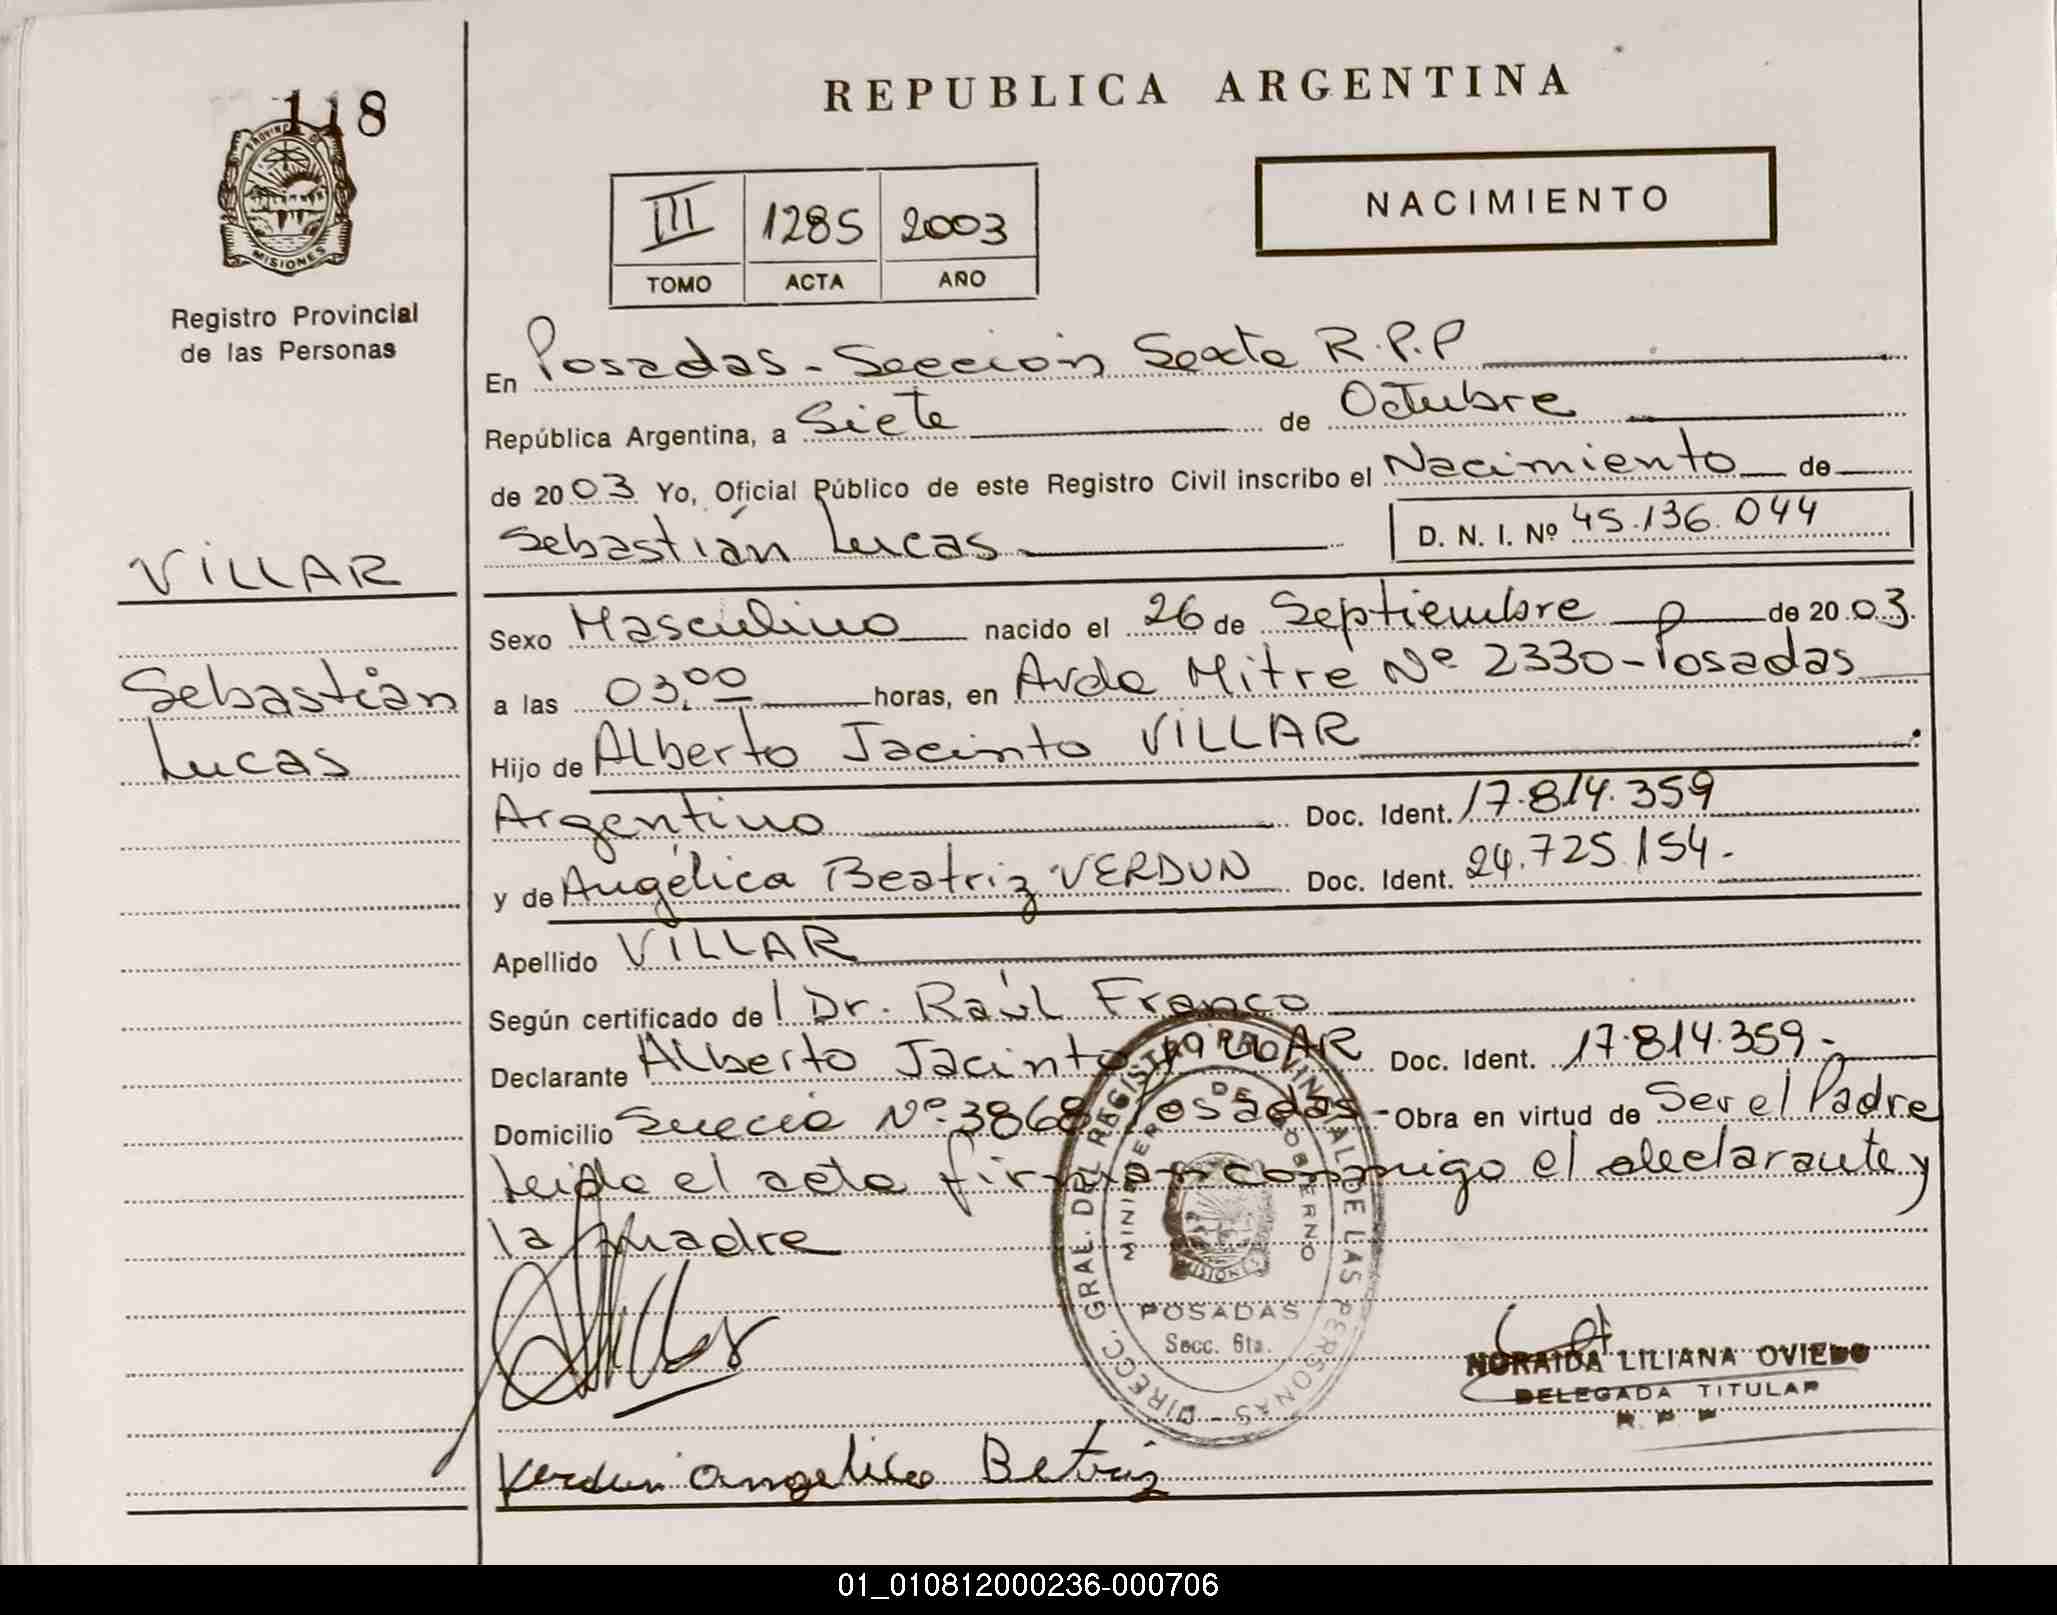 118
PROVINCIA DE
MISIONES
Registro Provincial
de las Personas
VILLAR
Sebastián
Lucas
REPUBLICA ARGENTINA
III 1285 2003
TOMO ACTA AÑO
NACIMIENTO
En Posadas - Sección Sexta R.P.P
República Argentina, a Siete de Octubre
de 2003 Yo, Oficial Público de este Registro Civil inscribo el Nacimiento de
Sebastián Lucas D. N. I. Nº 45.136.044
Sexo Masculino nacido el 26 de Septiembre de 2003.
a las 03,00 horas, en Avda Mitre Nº 2330 - Posadas
Hijo de Alberto Jacinto VILLAR
Argentino Doc. Ident. 17.814.359
y de Angélica Beatriz VERDUN Doc. Ident. 24.725.154.-
Apellido VILLAR
Según certificado del Dr. Raúl Franco
Declarante Alberto Jacinto VILLAR Doc. Ident. 17.814.359.-
Domicilio Suecia Nº 3868 Posadas - Obra en virtud de Ser el Padre
Leida el acta firman conmigo el declarante y
la Madre
DIRECC. GRAL. DEL REGISTRO PROVINCIAL DE LAS PERSONAS -
MINISTERIO DE GOBIERNO
MISIONES
POSADAS
Secc. 6ta.
NORAIDA LILIANA OVIEDO
DELEGADA TITULAR
R. P. P
Verdun angelica Betriz
01_010812000236-000706